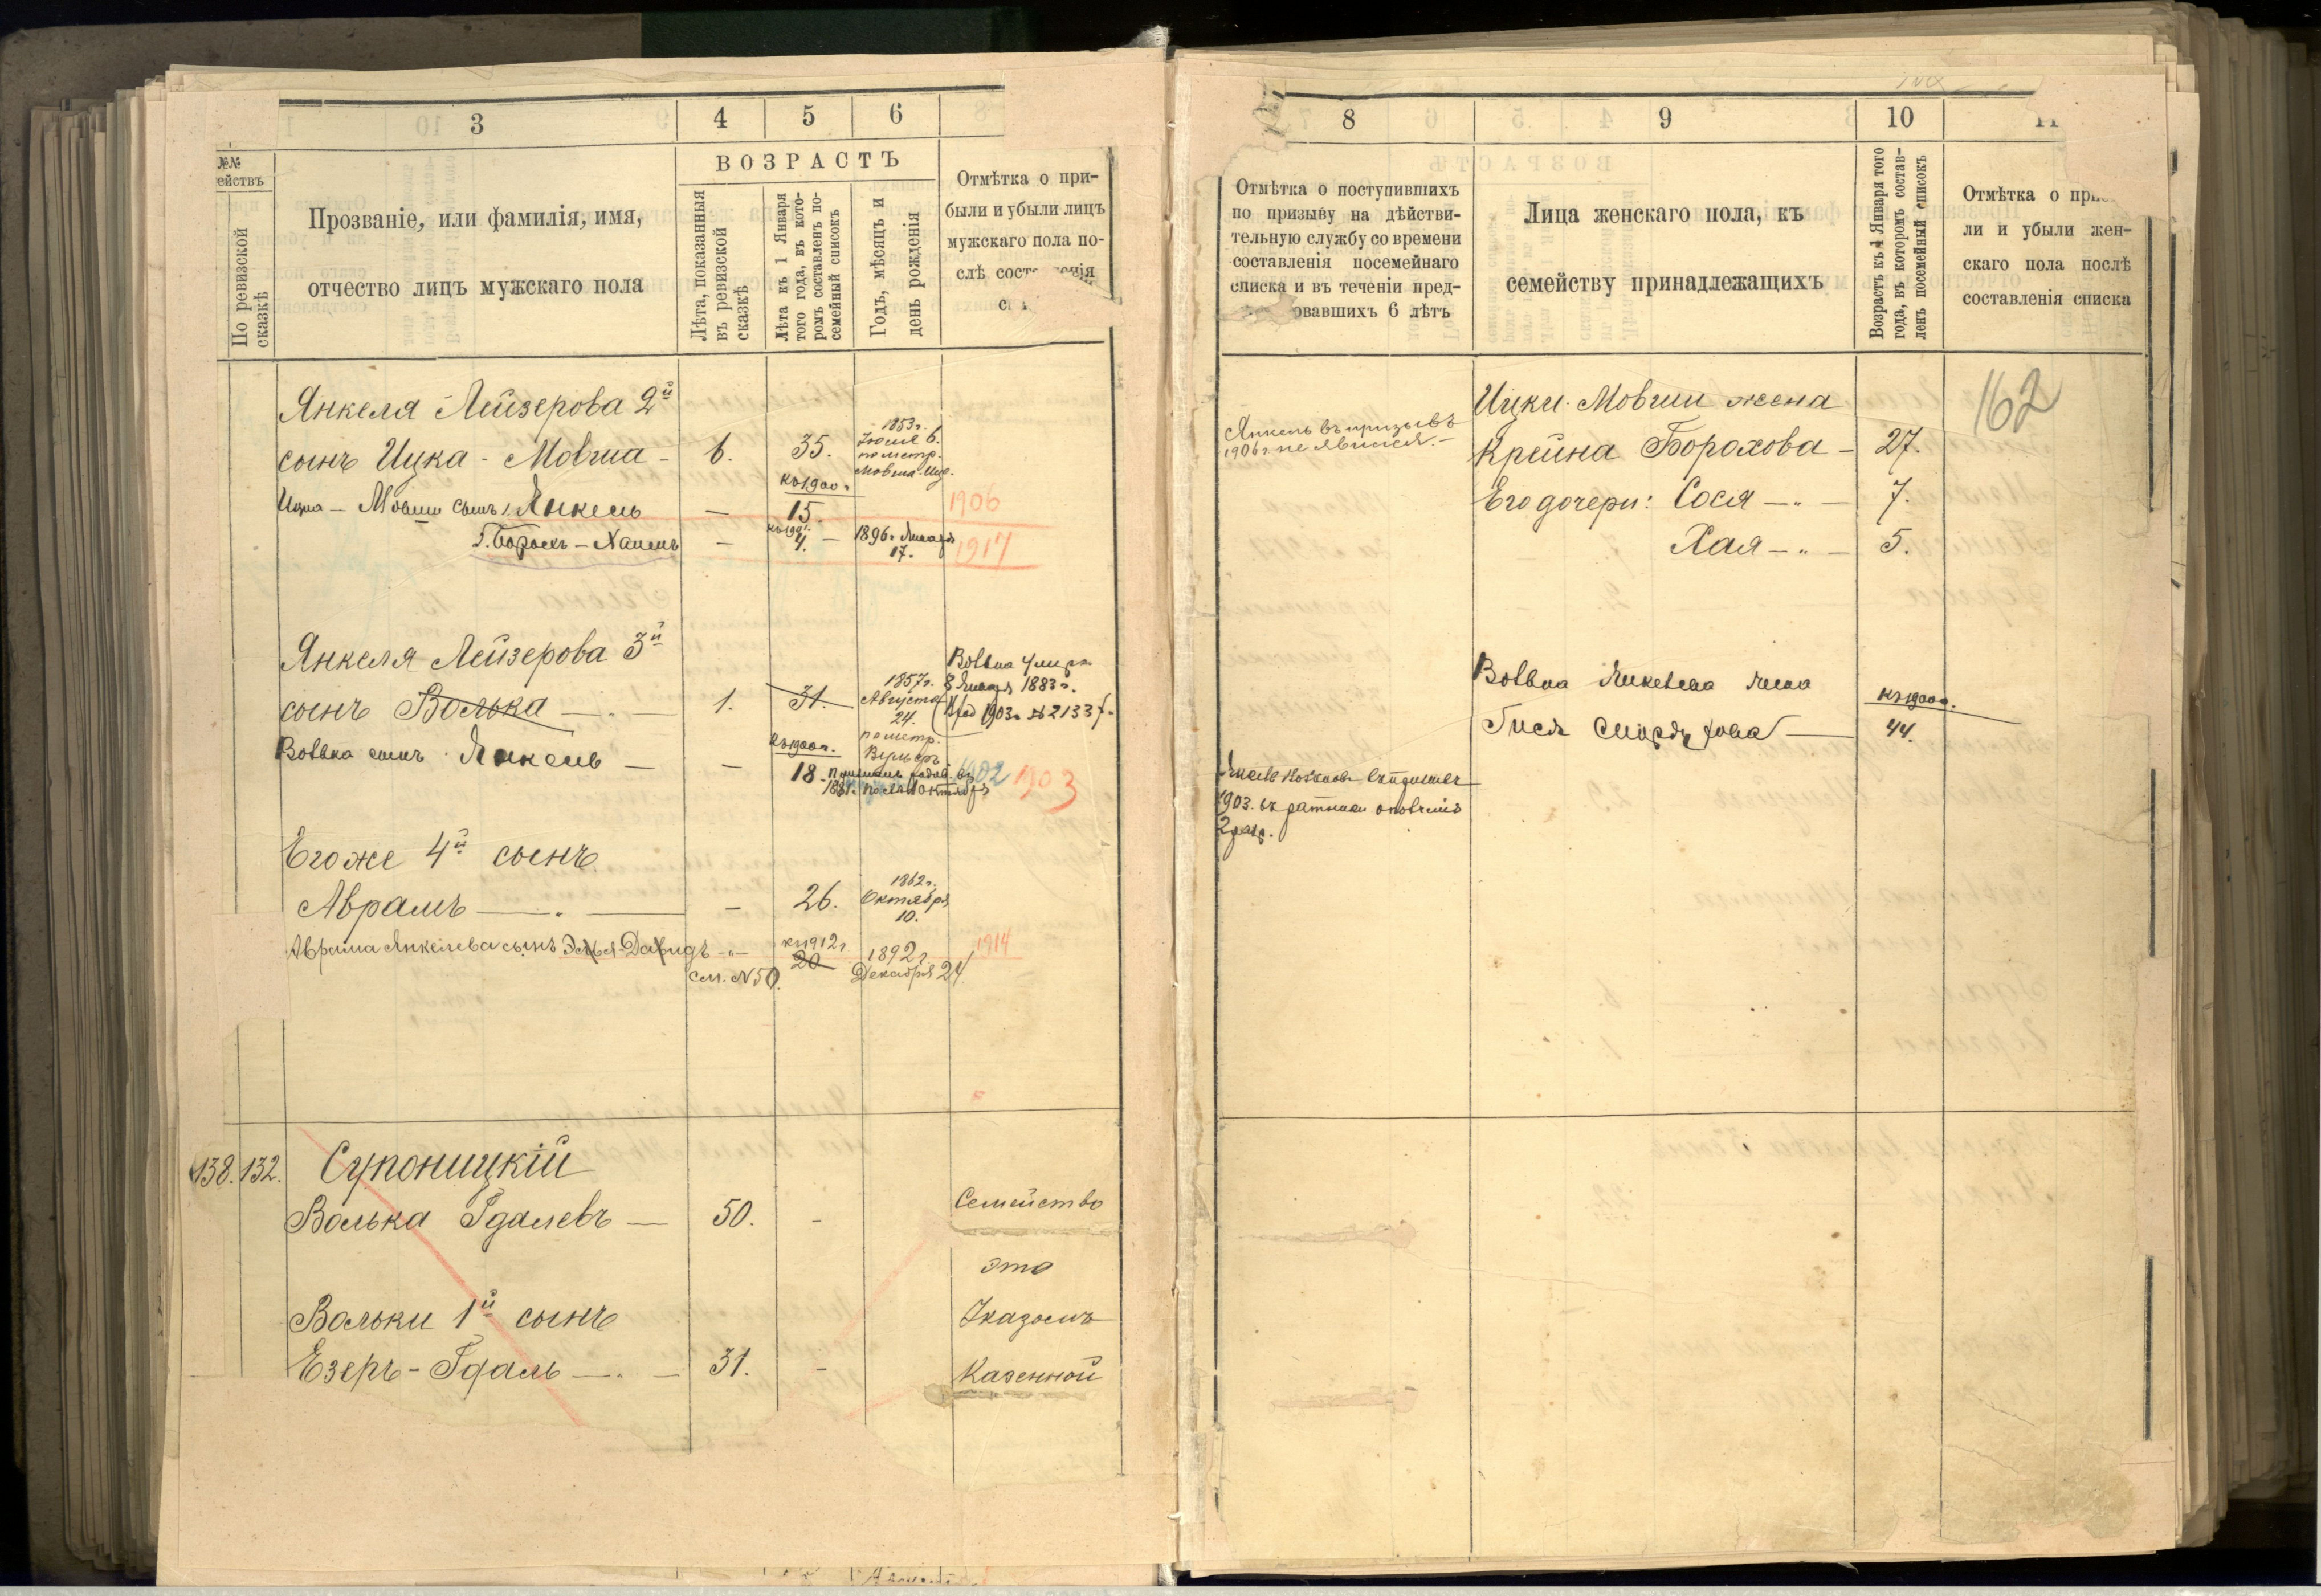 3
4
5
6
№№
ействъ
По ревизской
сказкѣ
Прозваніе, или фамилія, имя,
отчество лицъ мужскаго пола
ВОЗРАСТЪ
Лѣта, показанныя
въ ревизской
сказкѣ
Лѣта къ 1 Января
того года, въ кото-
ромъ составленъ по-
семейный списокъ
Годъ, мѣсяцъ и
день рожденія
Отмѣтка о при-
были и убыли лицъ
мужскаго пола по-
слѣ
Янкеля Лейзерова 2й
сынъ Ицка - Мовша - 6. 35. 1853г.
Іюля 6.
по метр.
Мовша-Ицк.
къ 1900 г.
Ицка - Мовши сынъ 1. Янкель — 15. 1906
къ 1901.
2. Борохъ - Хаимъ — 4. — 1896 г Января
17. 1917
Янкеля Лейзерова 3й
сынъ Волька — 1. 31. 1857г.
Августа
24.
по метр.
Вовка умеръ
8 Января 1883 г.
1903 г № 21337
Вовка сынъ Янкель — — къ 1900 г.
18 1902 1903
1881г. после 1 октября
Егоже 4й сынъ
Аврамъ — — 26. 1862г.
Октября
10.
Аврама Янкелева сынъ Эля-Давидъ — къ 1912 г
20 1892 г
Декабря 24 1914
см. № 50.
138. 132. Супоницкій
Волька Гдалевъ — 50. -
Вольки 1й сынъ
Езеръ - Гдаль — 31. -
Семейство
это
Указомъ
Казенной
8
9
10
11
Отмѣтка о поступившихъ
по призыву на дѣйстви-
тельную службу со времени
составленія посемейнаго
списка и въ теченіи пред-
овавшихъ 6 лѣтъ
Лица женскаго пола, къ
семейству принадлежащихъ
Возрастъ къ 1 Января того
года, въ которомъ состав-
ленъ посемейный списокъ
Отмѣтка о при
ли и убыли жен-
скаго пола послѣ
составленія списка
162
Янкель въ призывъ
1906 г. не явился. —
Ицки-Мовши жена
Крейна Борохова — 27.
Его дочери: Сося — 7.
Хая — 5.
Вовка Янкелева жена
Гися — къ 1900 г.
44.
1903. въ ратники ополченія
2 разр.